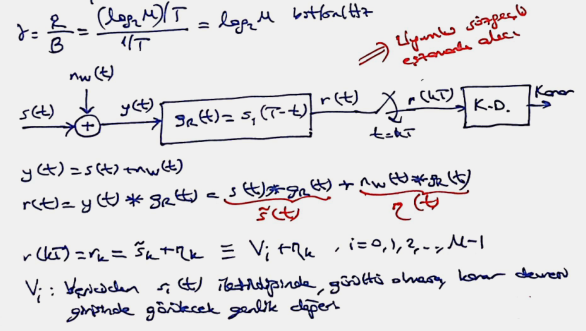 γ = R/B = (log₂M)/T / 1/T = log₂M bit/sn/Hz
⇒ Uyumlu süzgeçli
eşzamanlı alıcı
nw(t)
s(t) + y(t) gR(t) = s₁(T-t) r(t) r(kT) K.D. Karar
t=kT
y(t) = s(t) + nw(t)
r(t) = y(t) * gR(t) = s(t)*gR(t) + nw(t)*gR(t)
s̃(t) η(t)
r(kT) = rk = s̃k + ηk ≡ Vi + ηk , i=0,1,2,..,M-1
Vi : Vericiden si(t) iletildiğinde, gürültü olmasa, karar devresi
girişinde görülecek genlik değeri